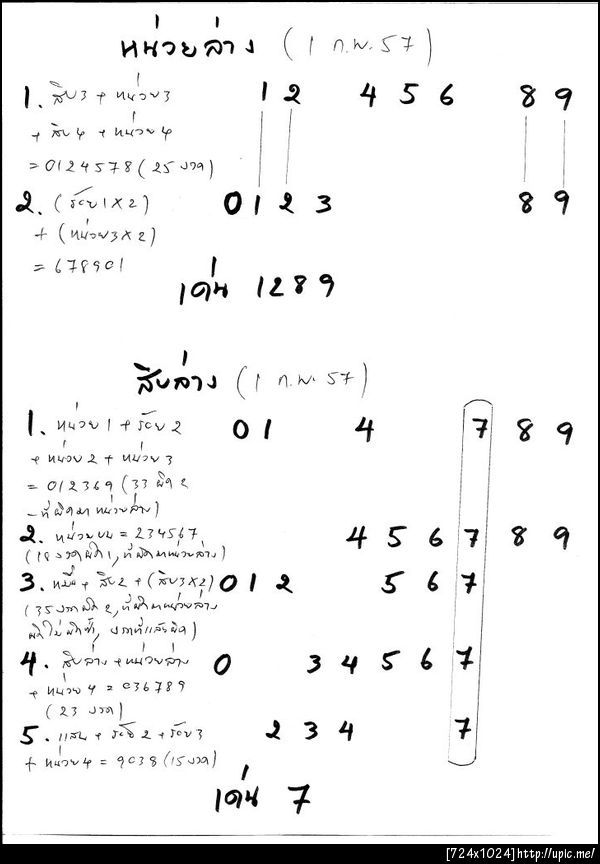 หน่วยล่าง (1 ก.พ. 57)
1. สิบ3 + หน่วย3 1 2 4 5 6 8 9
+ สิบ4 + หน่วย4
= 0124578 (25 งวด)
2. (ร้อย1X2) 0 1 2 3 8 9
+ (หน่วย3X2)
= 678901
เด่น 1289
สิบล่าง (1 ก.พ. 57)
1. หน่วย1 + ร้อย2 0 1 4 7 8 9
+ หน่วย2 + หน่วย3
= 012369 (33 ผิด 2
- ที่ผิดมาหน่วยล่าง)
2. หน่วยบน = 234567 4 5 6 7 8 9
(18 งวดผิด1, ที่ผิดมาหน่วยล่าง)
3. หมื่น + สิบ2 + (สิบ3X2) 0 1 2 5 6 7
(35 งวดผิด 2, ที่ผิดมาหน่วยล่าง
ผิดไม่ผิดซ้ำ, งวดที่แล้วผิด)
4. สิบล่าง + หน่วยล่าง 0 3 4 5 6 7
+ หน่วย4 = 036789
(23 งวด)
5. แสน + ร้อย2 + ร้อย3 2 3 4 7
+ หน่วย4 = 9038 (15 งวด)
เด่น 7
[724x1024]http://upic.me/